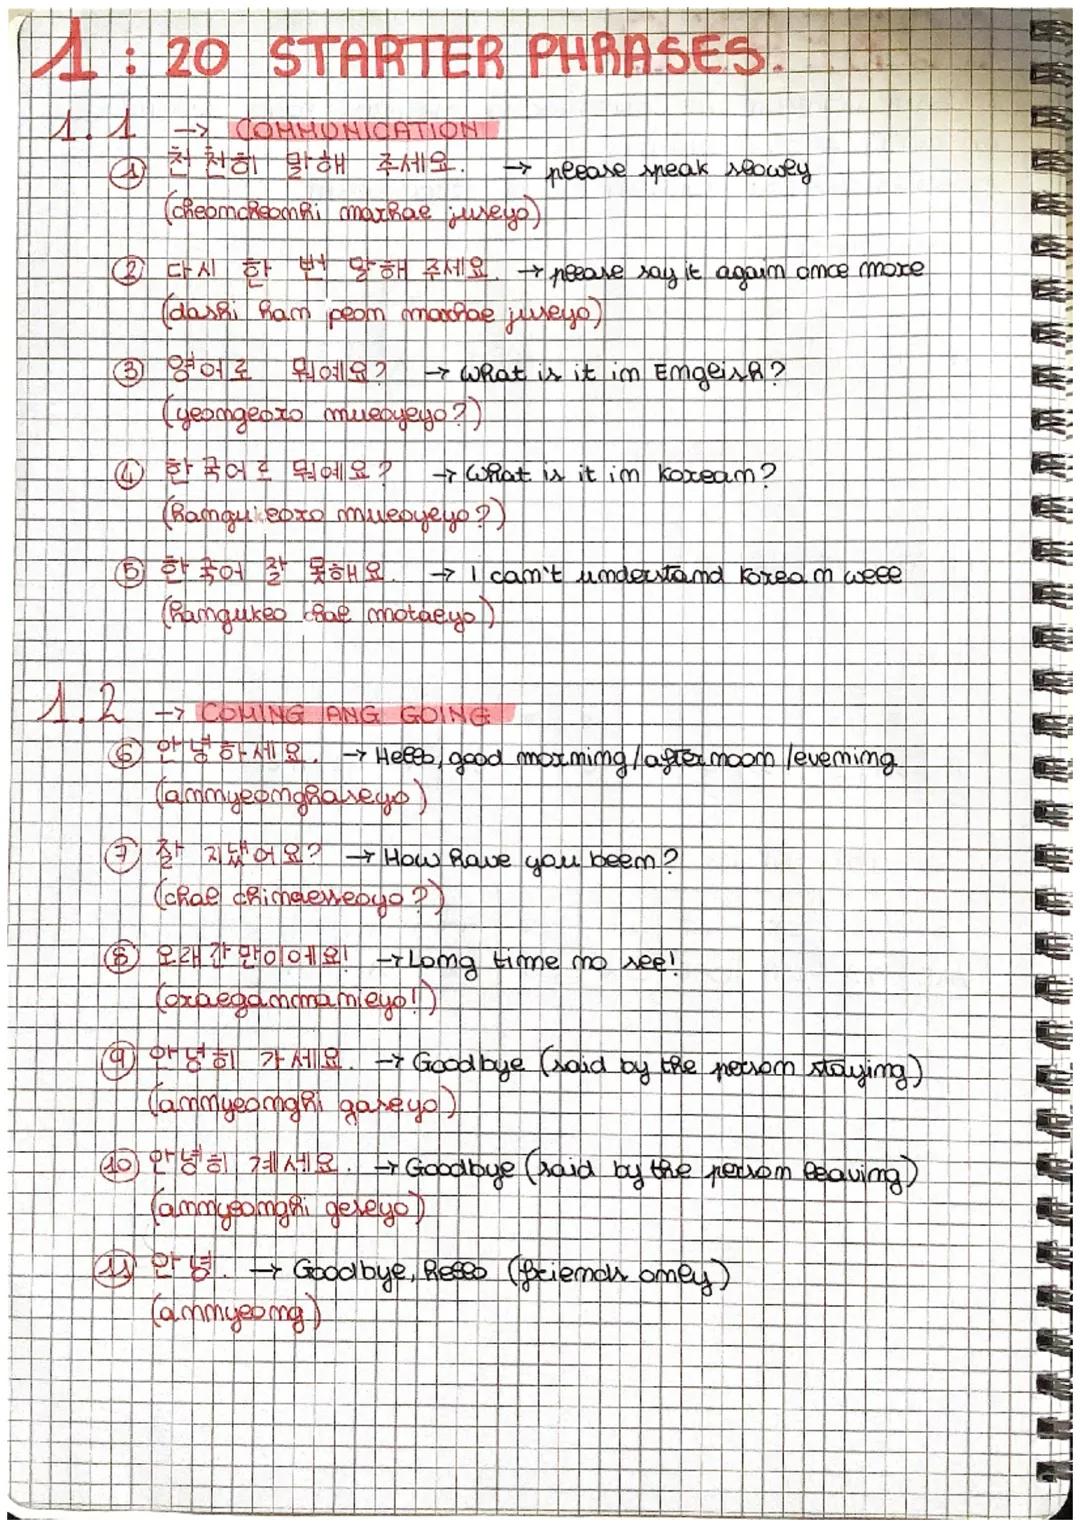 1 : 20 STARTER PHRASES.
1.1 → COMMUNICATION
① 천천히 말해 주세요. → please speak slowly
(cheoncheonhi marhae juseyo)
② 다시 한 번 말해 주세요. → please say it again once more
(dashi han peon marhae juseyo)
③ 영어로 뭐예요? → What is it in English?
(yeongeoro mueoyeyo?)
④ 한국어로 뭐예요? → What is it in Korean?
(hangukeoro mueoyeyo?)
⑤ 한국어 잘 못해요. → I can't understand Korean well
(hangukeo chal motaeyo)
1.2 → COMING ANG GOING
⑥ 안녕하세요. → Hello, good morning/afternoon/evening
(annyeonghaseyo)
⑦ 잘 지냈어요? → How have you been?
(chal chinaesseoyo?)
⑧ 오래간만이에요! → Long time no see!
(oraeganmanieyo!)
⑨ 안녕히 가세요. → Goodbye (said by the person staying)
(annyeonghi gaseyo)
⑩ 안녕히 계세요. → Goodbye (said by the person leaving)
(annyeonghi geseyo)
⑪ 안녕. → Goodbye, hello (friends only)
(annyeong)